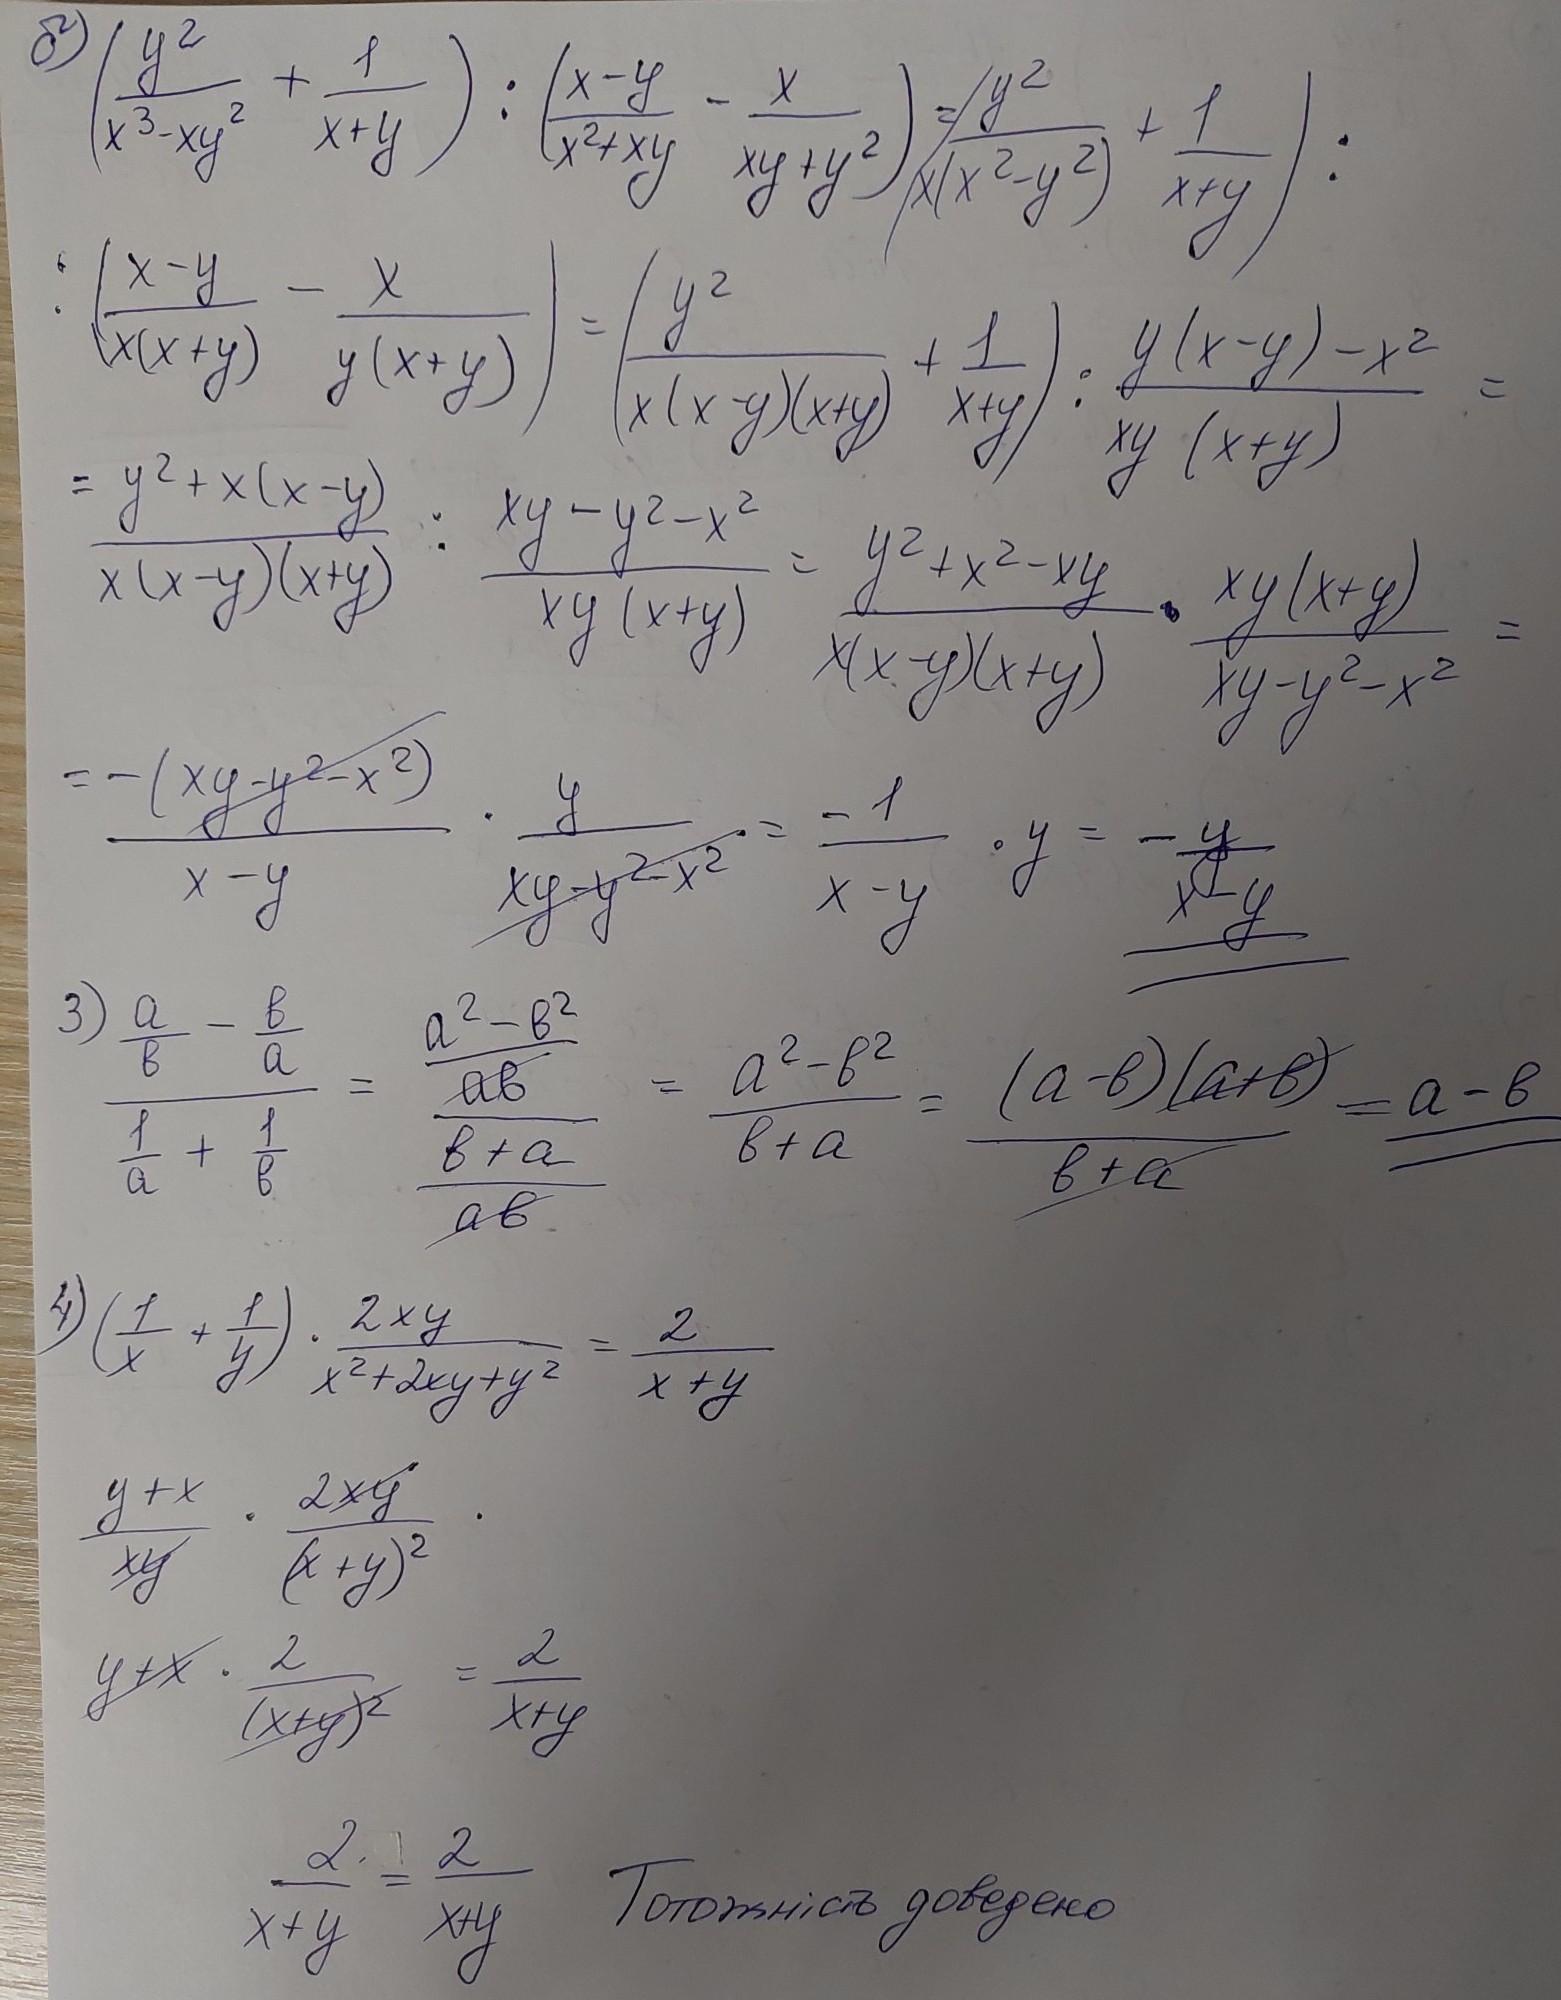 б) (y²/(x³-xy²) + 1/(x+y)) : ((x-y)/(x²+xy) - x/(xy+y²)) = (y²/(x(x²-y²)) + 1/(x+y)) :
: ((x-y)/(x(x+y)) - x/(y(x+y))) = (y²/(x(x-y)(x+y)) + 1/(x+y)) : (y(x-y)-x²)/(xy(x+y)) =
= (y²+x(x-y))/(x(x-y)(x+y)) : (xy-y²-x²)/(xy(x+y)) = (y²+x²-xy)/(x(x-y)(x+y)) · (xy(x+y))/(xy-y²-x²) =
= -(xy-y²-x²)/(x-y) · y/(xy-y²-x²) = -1/(x-y) · y = -y/(x-y)
3) (a/в - в/a)/(1/a + 1/в) = ((a²-в²)/(aв))/((в+a)/(aв)) = (a²-в²)/(в+a) = ((a-в)(a+в))/(в+a) = a-в
4) (1/x + 1/y) · 2xy/(x²+2xy+y²) = 2/(x+y)
(y+x)/(xy) · 2xy/(x+y)² ·
y+x · 2/(x+y)² = 2/(x+y)
2/(x+y) = 2/(x+y) Тотожність доведено